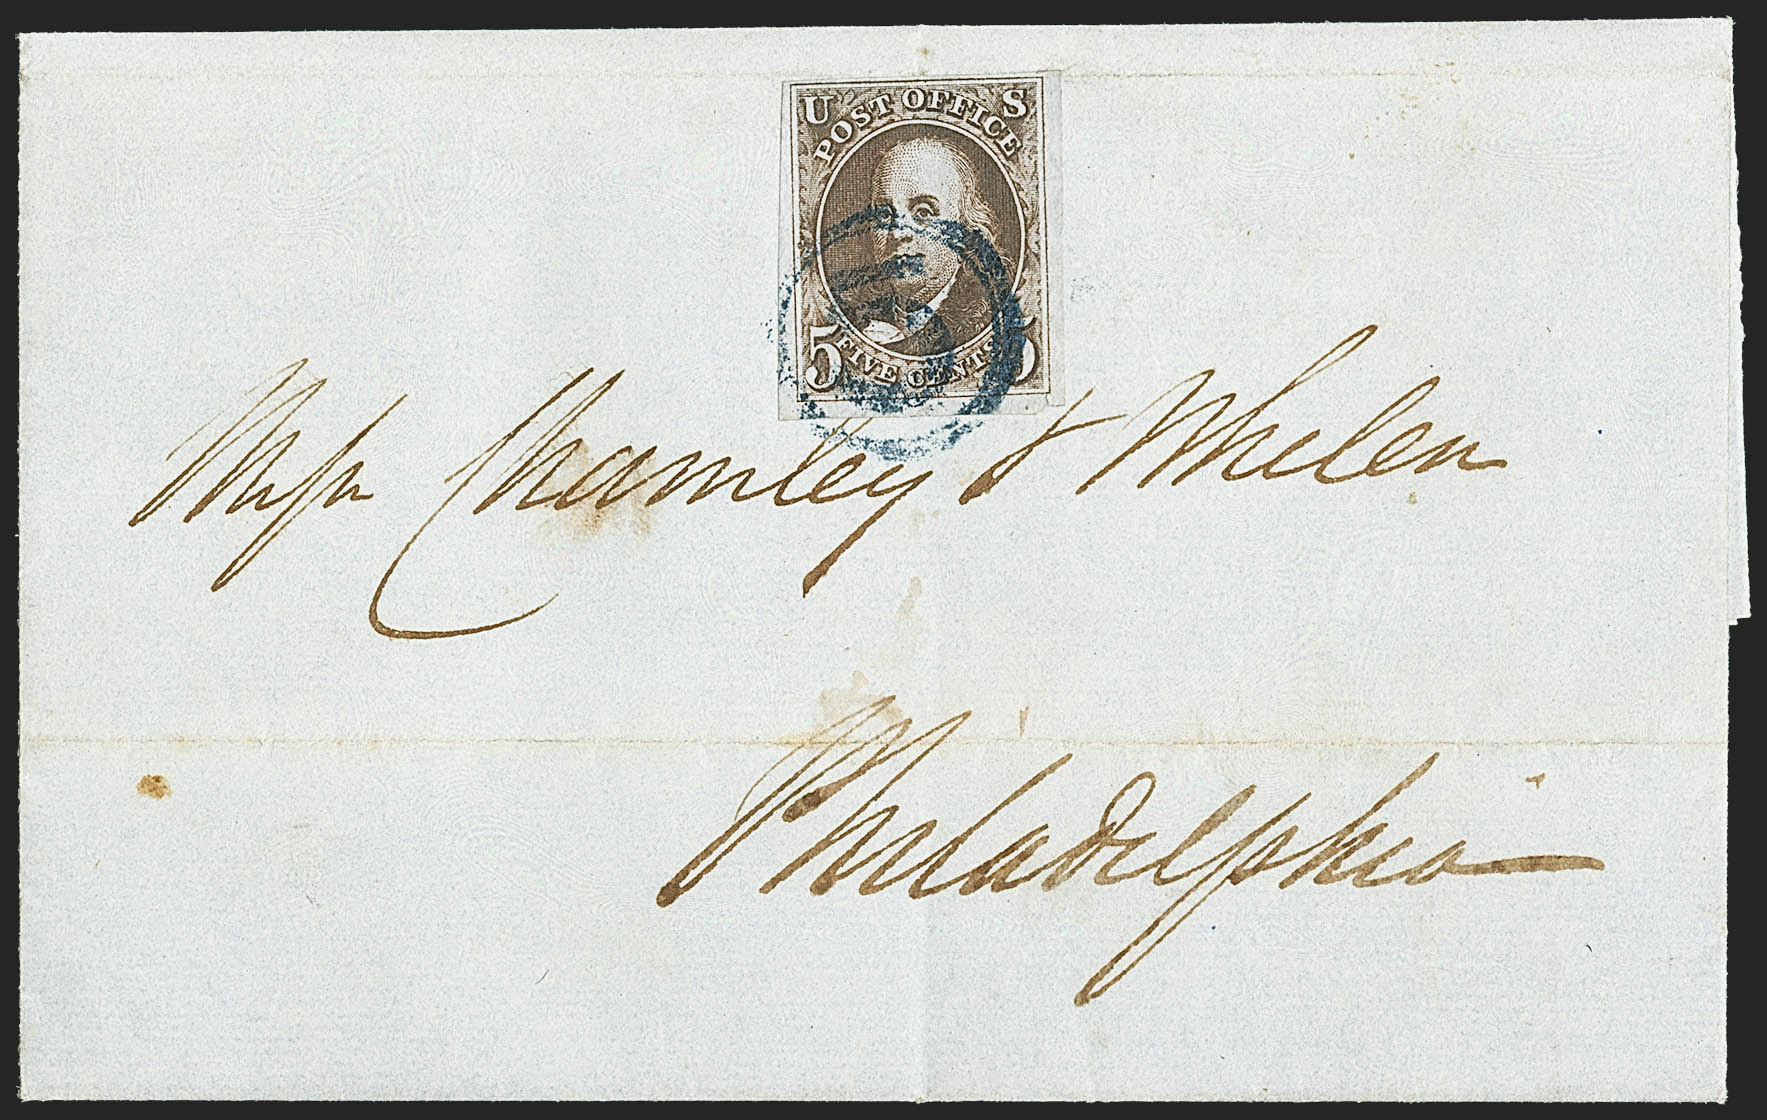 U S
POST OFFICE
5 FIVE CENTS 5
Messrs Chamley & Whelen
Philadelphia